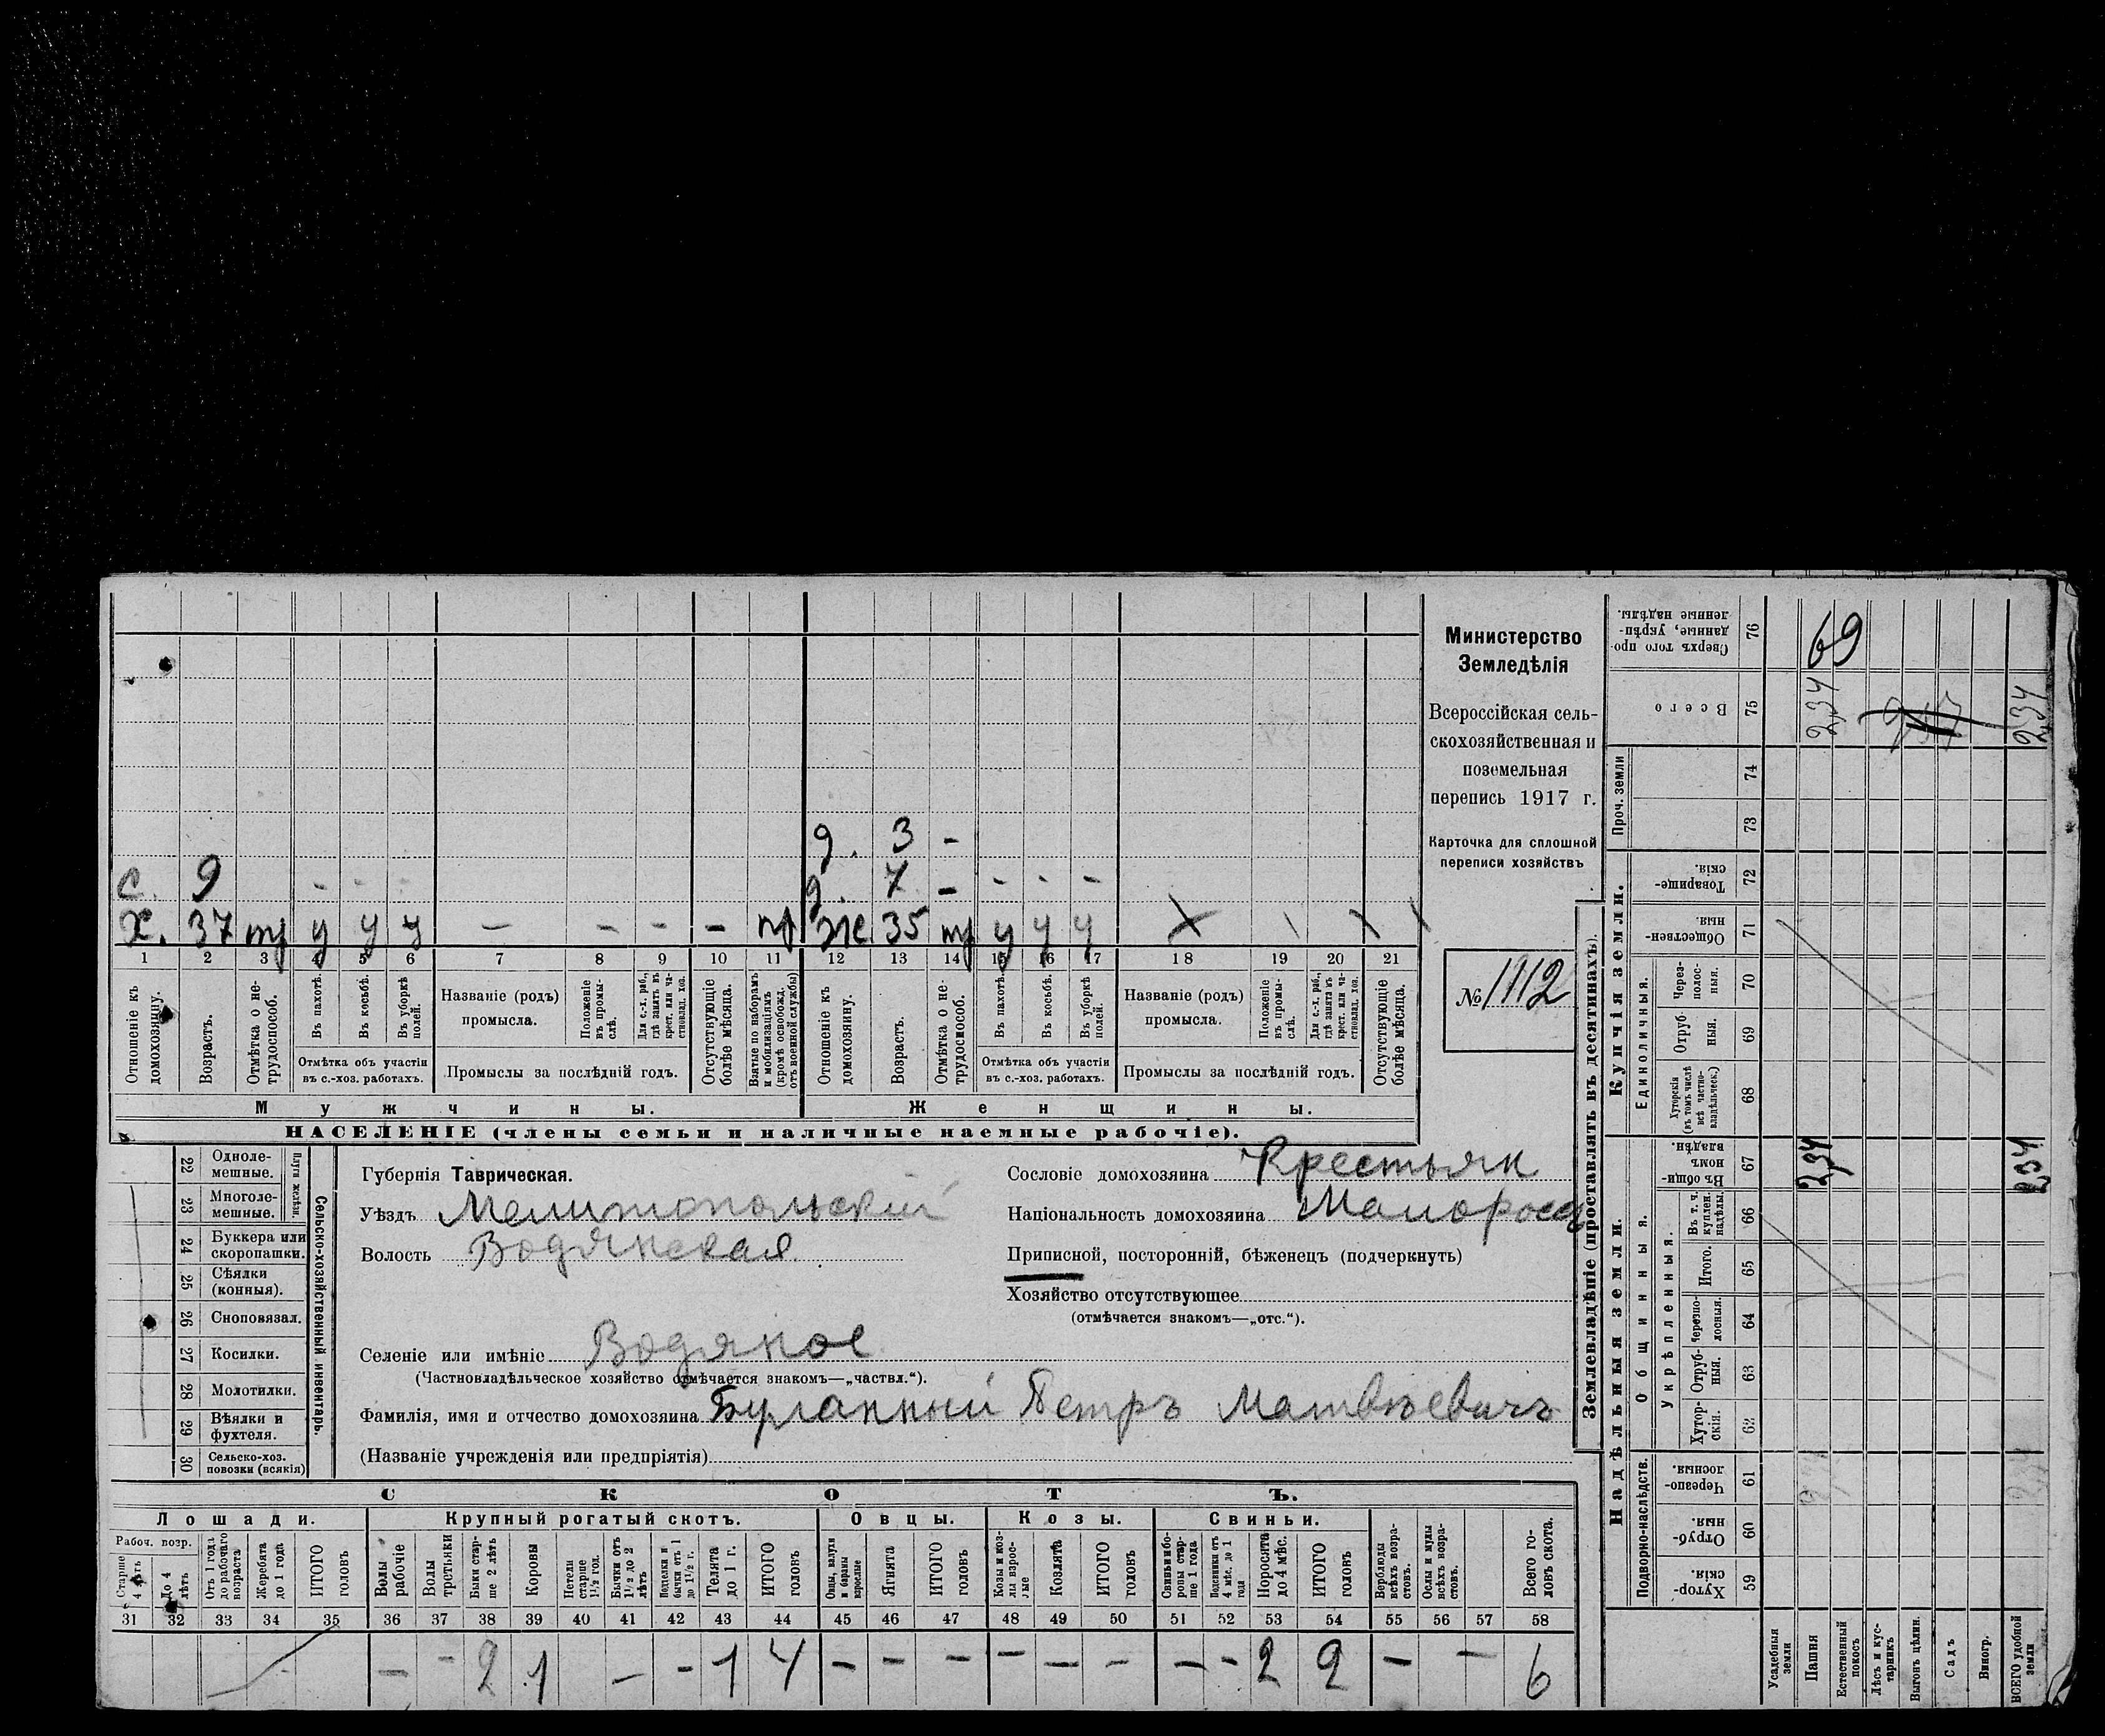 д. 3 -
с. 9 - - - д. 7 - - - -
х. 37 тр у у у - - - - ж. 35 тр у у у
1 2 3 4 5 6 7 8 9 10 11 12 13 14 15 16 17 18 19 20 21
Отношеніе къ домохозяину.
Возрастъ.
Отмѣтка о не-трудоспособ.
Въ пахотѣ.
Въ косьбѣ.
Въ уборкѣ полей.
Отмѣтка объ участіи въ с.-хоз. работахъ.
Названіе (родъ) промысла.
Положеніе въ промы-слѣ.
Для с.-х. раб., гдѣ занятъ въ крест. или ча-стновлад. хоз.
Промыслы за послѣдній годъ.
Отсутствующіе болѣе мѣсяца.
Взятые по наборамъ и мобилизаціямъ (кромѣ освобожд. отъ военной службы)
Отношеніе къ домохозяину.
Возрастъ.
Отмѣтка о не-трудоспособ.
Въ пахотѣ.
Въ косьбѣ.
Въ уборкѣ полей.
Отмѣтка объ участіи въ с.-хоз. работахъ.
Названіе (родъ) промысла.
Положеніе въ промы-слѣ.
Для с.-х. раб., гдѣ занята въ крест. или ча-стновлад. хоз.
Промыслы за послѣдній годъ.
Отсутствующіе болѣе мѣсяца.
Мужчины. Женщины.
НАСЕЛЕНІЕ (члены семьи и наличные наемные рабочіе).
Министерство
Земледѣлія
Всероссійская сель-
скохозяйственная и
поземельная
перепись 1917 г.
Карточка для сплошной
переписи хозяйствъ
№ 1112
22 Одноле-мешные.
23 Многоле-мешные.
Плуги желѣзн.
24 Буккера или скоропашки.
25 Сѣялки (конныя).
26 Сноповязал.
27 Косилки.
28 Молотилки.
29 Вѣялки и фухтеля.
30 Сельско-хоз. повозки (всякія)
Сельско-хозяйственный инвентарь.
Губернія Таврическая.
Уѣздъ Мелитопольскій
Волость Водянская
Сословіе домохозяина Крестьян
Національность домохозяина Малоросс
Приписной, посторонній, бѣженецъ (подчеркнуть)
Хозяйство отсутствующее
(отмѣчается знакомъ—„отс.“).
Селеніе или имѣніе Водяное
(Частновладѣльческое хозяйство отмѣчается знакомъ—„частвл.“).
Фамилія, имя и отчество домохозяина Буланный Петръ Матвѣевичъ
(Названіе учрежденія или предпріятія)
СКОТЪ.
Лошади. Крупный рогатый скотъ. Овцы. Козы. Свиньи.
Рабоч. возр.
Старше 4 лѣтъ
До 4 лѣтъ
Отъ 1 года до рабочаго возраста
Жеребята до 1 года
ИТОГО головъ
Волы рабочіе
Волы третьяки
Быки стар-ше 2 лѣтъ
Коровы
Нетели старше 1½ год.
Бычки отъ 1½ до 2 лѣтъ
Подтелки и бычки отъ 1 до 1½ г.
Телята до 1 г.
ИТОГО головъ
Овцы, валухи и бараны взрослые
Ягнята
ИТОГО головъ
Козы и коз-лы взрос-лые
Козлята
ИТОГО головъ
Свиньи и бо-ровы стар-ше 1 года
Подсвинки отъ 4 мѣс. до 1 года
Поросята до 4 мѣс.
ИТОГО головъ
Верблюды всѣхъ возра-стовъ.
Ослы и мулы всѣхъ возра-стовъ.
Всего го-ловъ скота.
31 32 33 34 35 36 37 38 39 40 41 42 43 44 45 46 47 48 49 50 51 52 53 54 55 56 57 58
- - 2 1 - - 1 4 - - - - - - - - 2 2 - - 6
Землевладѣніе (проставлять въ десятинахъ).
Купчія земли.
Надѣльныя земли.
Сверхъ того про-данные, укрѣп-ленные надѣлы. 76 69
Всего 75 2,34 2,34
Проч. земли 74 73
Товарище-скія 72
Обществен-ныя 71
Единоличныя.
Через-полос-ныя. 70
Отруб-ныя. 69
Хуторскія (въ томъ числѣ всѣ частно-владѣльческ.) 68
Общинныя.
Въ общи-номъ владѣн. 67 2,34 2,34
Укрѣпленныя.
Въ т. ч. куплен. надѣлы. 66
Итого. 65
Черезпо-лосныя. 64
Отруб-ныя. 63
Хутор-скія. 62
Подворно-наслѣдств.
Черезпо-лосныя. 61
Отруб-ныя. 60
Хутор-скія. 59
Усадебныя земли
Пашня
Естественный покосъ
Лѣсъ и кус-тарникъ
Выгонъ цѣлин.
Садъ
Виногр.
ВСЕГО удобной земли